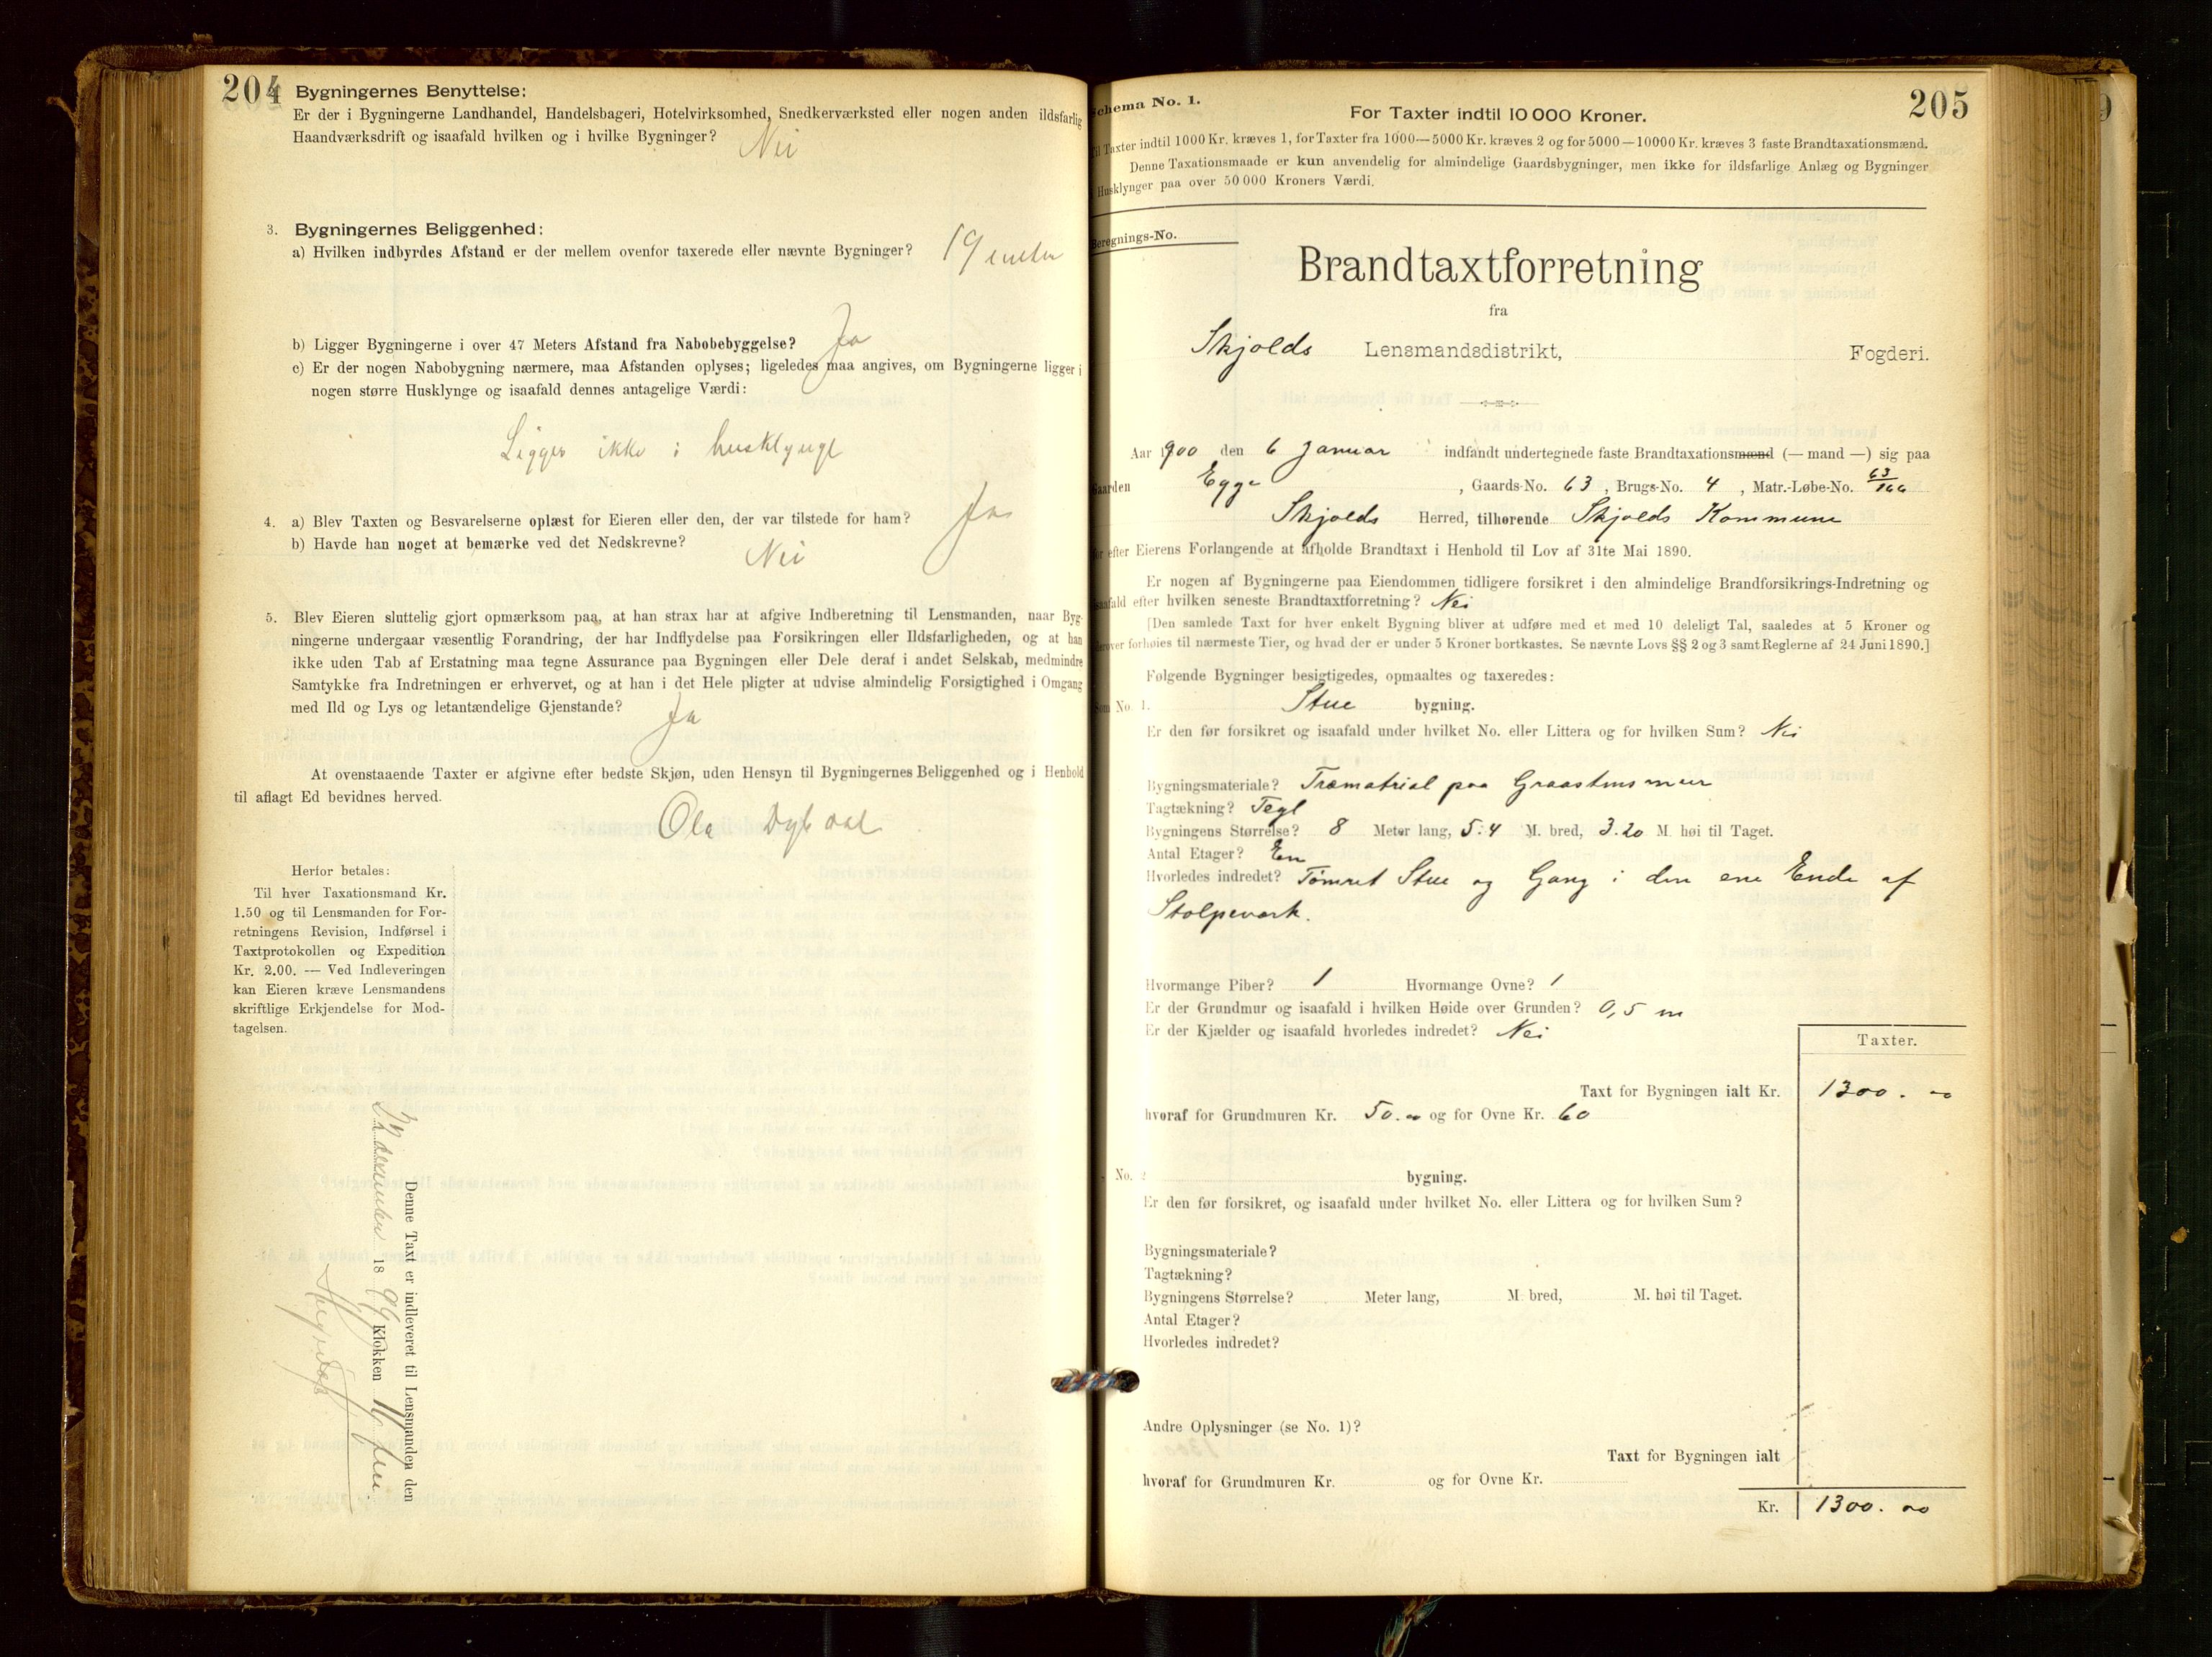 204
Bygningernes Benyttelse:
Er der i Bygningerne Landhandel, Handelsbageri, Hotelvirksomhed, Snedkerværksted eller nogen anden ildsfarlig
Haandværksdrift og isaafald hvilken og i hvilke Bygninger? Nei
3. Bygningernes Beliggenhed:
a) Hvilken indbyrdes Afstand er der mellem ovenfor taxerede eller nævnte Bygninger? 19 meter
b) Ligger Bygningerne i over 47 Meters Afstand fra Nabobebyggelse? Ja
c) Er der nogen Nabobygning nærmere, maa Afstanden oplyses; ligeledes maa angives, om Bygningerne ligger i
nogen større Husklynge og isaafald dennes antagelige Værdi:
Ligger ikke i husklynge
4. a) Blev Taxten og Besvarelserne oplæst for Eieren eller den, der var tilstede for ham? Ja
b) Havde han noget at bemærke ved det Nedskrevne? Nei
5. Blev Eieren sluttelig gjort opmærksom paa, at han strax har at afgive Indberetning til Lensmanden, naar Byg-
ningerne undergaar væsentlig Forandring, der har Indflydelse paa Forsikringen eller Ildsfarligheden, og at han
ikke uden Tab af Erstatning maa tegne Assurance paa Bygningen eller Dele deraf i andet Selskab, medmindre
Samtykke fra Indretningen er erhvervet, og at han i det Hele pligter at udvise almindelig Forsigtighed i Omgang
med Ild og Lys og letantændelige Gjenstande? Ja
At ovenstaaende Taxter er afgivne efter bedste Skjøn, uden Hensyn til Bygningernes Beliggenhed og i Henhold
til aflagt Ed bevidnes herved.
Ola
Herfor betales:
Til hver Taxationsmand Kr.
1.50 og til Lensmanden for For-
retningens Revision, Indførsel i
Taxtprotokollen og Expedition
Kr. 2.00. — Ved Indleveringen
kan Eieren kræve Lensmandens
skriftlige Erkjendelse for Mod-
tagelsen.
Denne Taxt er indleveret til Lensmanden den
december 1899 Klokken
205
Schema No. 1.
For Taxter indtil 10 000 Kroner.
Til Taxter indtil 1000 Kr. kræves 1, for Taxter fra 1000—5000 Kr. kræves 2 og for 5000—10000 Kr. kræves 3 faste Brandtaxationsmænd.
Denne Taxationsmaade er kun anvendelig for almindelige Gaardsbygninger, men ikke for ildsfarlige Anlæg og Bygninger
Husklynger paa over 50 000 Kroners Værdi.
Beregnings-No.
Brandtaxtforretning
fra
Skjolds Lensmandsdistrikt, Fogderi.
Aar 1900 den 6 Januar indfandt undertegnede faste Brandtaxationsmænd (— mand —) sig paa
Gaarden Egge, Gaards-No. 63, Brugs-No. 4, Matr.-Løbe-No. 63/166
Skjolds Herred, tilhørende Skjolds Kommune
for efter Eierens Forlangende at afholde Brandtaxt i Henhold til Lov af 31te Mai 1890.
Er nogen af Bygningerne paa Eiendommen tidligere forsikret i den almindelige Brandforsikrings-Indretning og
isaafald efter hvilken seneste Brandtaxtforretning? Nei
[Den samlede Taxt for hver enkelt Bygning bliver at udføre med et med 10 deleligt Tal, saaledes at 5 Kroner og
derover forhøies til nærmeste Tier, og hvad der er under 5 Kroner bortkastes. Se nævnte Lovs §§ 2 og 3 samt Reglerne af 24 Juni 1890.]
Følgende Bygninger besigtigedes, opmaaltes og taxeredes:
Som No. 1. Stue bygning.
Er den før forsikret og isaafald under hvilket No. eller Littera og for hvilken Sum? Nei
Bygningsmateriale? Træmatrial paa Graastensmur
Tagtækning? Tegl
Bygningens Størrelse? 8 Meter lang, 5.4 M. bred, 3.20 M. høi til Taget.
Antal Etager? En
Hvorledes indredet? Tømret Stue og Gang i den ene Ende af
Stolpeverk.
Hvormange Piber? 1 Hvormange Ovne? 1
Er der Grundmur og isaafald i hvilken Høide over Grunden? 0,5 m
Er der Kjælder og isaafald hvorledes indredet? Nei
Taxter.
Taxt for Bygningen ialt Kr. 1300. 00
hvoraf for Grundmuren Kr. 50.00 og for Ovne Kr. 60
No. 2 bygning.
Er den før forsikret, og isaafald under hvilket No. eller Littera og for hvilken Sum?
Bygningsmateriale?
Tagtækning?
Bygningens Størrelse? Meter lang, M. bred, M. høi til Taget.
Antal Etager?
Hvorledes indredet?
Andre Oplysninger (se No. 1)?
Taxt for Bygningen ialt
hvoraf for Grundmuren Kr. og for Ovne Kr.
Kr. 1300. 00